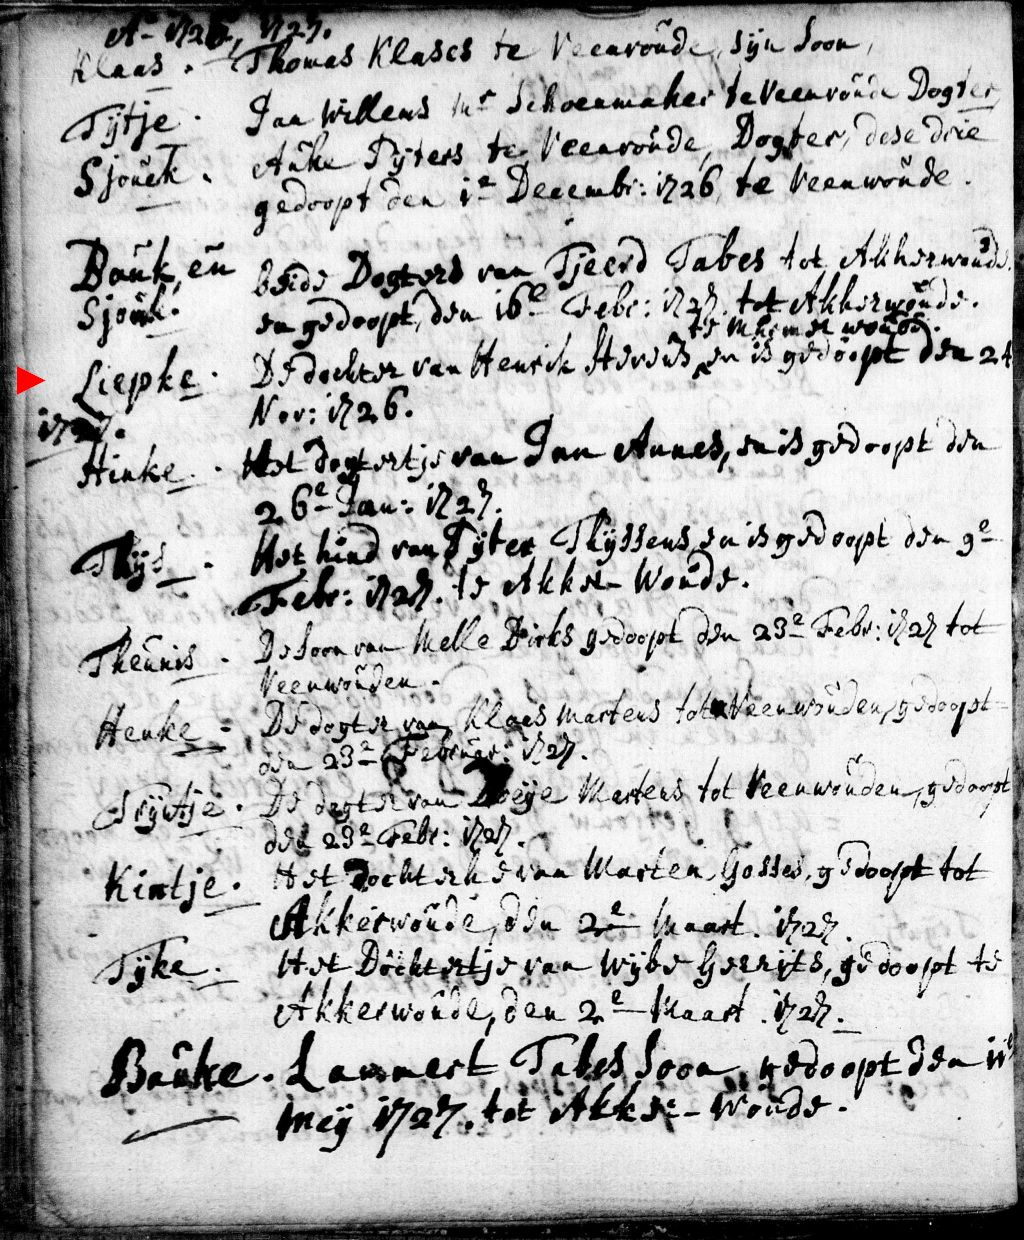 Ao 1726, 1727.
Klaas. Thomas Klases te Veenwoude, sijn Soon,
Tijtje. Jan Willems Mr Schoenmaker te Veenwoude Dogter,
Sjouck. Auke Pijters te Veenwoude, Dogter, dese drie
gedoopt den 1e Decembr: 1726, te Veenwoude.
Bauk, en beide Dogters van Tjeerd Tabes tot Akkerwoude.
Sjouk. en gedoopt, den 16e Febr: 1727. tot Akkerwoude.
te Akkerwoude.
Liepke. De dochter van Henrik, en is gedoopt den 24
Nov: 1726.
1727.
Hinke. Het dogtertje van Jan Annes, en is gedoopt den
26e Jan: 1727.
Thijs. Het kind van Pijter Thijssens en is gedoopt den 9e
Febr: 1727. te Akker-Woude.
Theunis. De Soon van Melle Dirks gedoopt den 23e Febr: 1727 tot
Veenwouden.
Henke. De dogter van Klaes Martens tot Veenwouden, gedoopt
den 23e Februar: 1727.
Trijntje. De dogter van Martens tot Veenwouden, gedoopt
den 23e Febr: 1727.
Kintje. Het dochterke van Marten Gosses, gedoopt tot
Akkerwoude, den 2e Maart. 1727.
Tijke. Het Dochtertje van Wijbe Gerrijts, gedoopt te
Akkerwoude, den 2e Maart. 1727.
Bauke. Lammert Tabes Soon, gedoopt den 11e
Meij 1727. tot Akker-Woude.